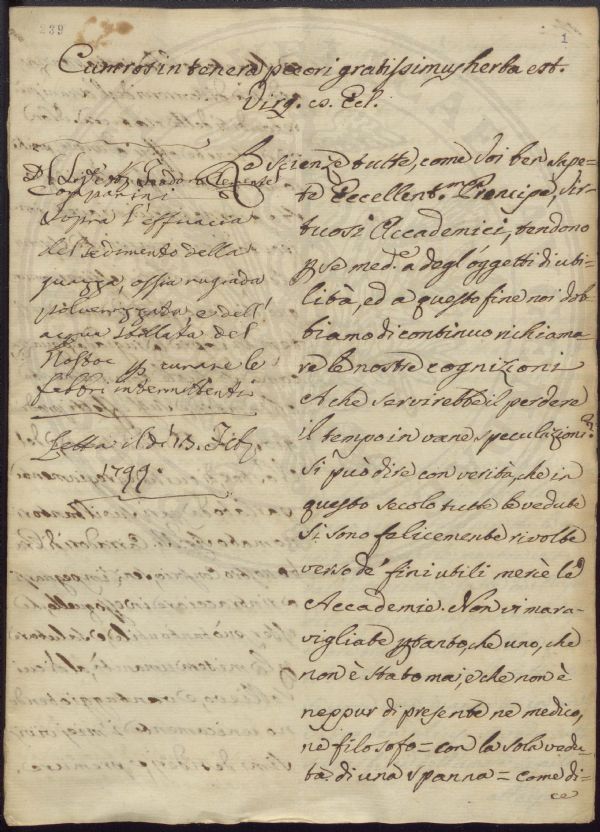 239
1
Cum ros in tenera pecori gratissimus herba est.
Virg. Ecl.
Sopra l'efficacia
del sedimento della
guazza, ossia rugiada
polverizzata e dell'
acqua stillata del
Nostoc p. curare le
febbri intermittenti
Letta il dì 13.
1799.
Le scienze tutte, come Voi ben sape-
te Eccellent.mo Principe, Vir-
tuosi Accademici, tendono
p se med.e a degl'oggetti di uti-
lità, ed a questo fine noi dob-
biamo di continuo richiama-
re le nostre cognizioni
A che servirebbe il perdere
il tempo in vane speculazioni?
Si può dire con verità, che in
questo secolo tutte le vedute
si sono felicemente rivolte
verso de' fini utili mercè le
Accademie. Non vi mara-
vigliate ptanto, che uno, che
non è stato mai, e che non è
neppur di presente nè medico,
nè filosofo = con la sola vedu-
ta di una spanna = come di-
ce